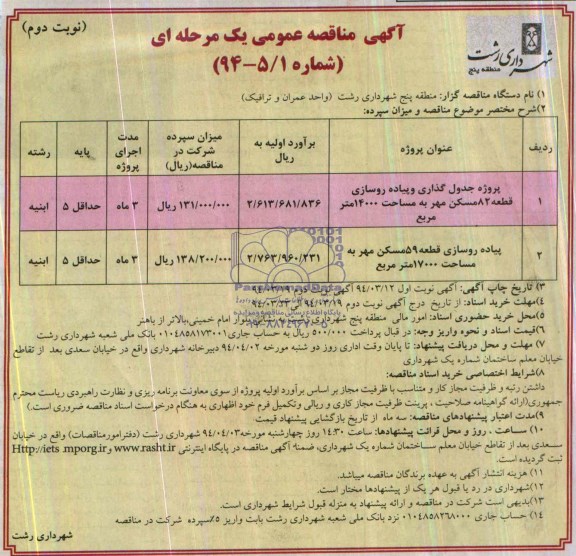 (نوبت دوم)
آگهی مناقصه عمومی یک مرحله ای
(شماره ۵/۱-۹۴)
شهرداری رشت
منطقه پنج
۱) نام دستگاه مناقصه گزار: منطقه پنج شهرداری رشت (واحد عمران و ترافیک)
۲)شرح مختصر موضوع مناقصه و میزان سپرده:
ردیف عنوان پروژه برآورد اولیه به ریال میزان سپرده شرکت در مناقصه(ریال) مدت اجرای پروژه پایه رشته
۱ پروژه جدول گذاری وپیاده روسازی قطعه۸۲مسکن مهر به مساحت ۱۴۰۰۰متر مربع ۲/۶۱۳/۶۸۱/۸۳۶ ۱۳۱/۰۰۰/۰۰۰ ریال ۳ ماه حداقل ۵ ابنیه
۲ پیاده روسازی قطعه۵۹مسکن مهر به مساحت ۱۷۰۰۰متر مربع ۲/۷۶۳/۹۶۰/۲۳۱ ۱۳۸/۲۰۰/۰۰۰ ریال ۳ ماه حداقل ۵ ابنیه
۳) تاریخ چاپ آگهی: آگهی نوبت اول ۹۴/۰۳/۱۲ آگهی نوبت دوم ۹۴/۰۳/۱۹
۴)مهلت خرید اسناد: از تاریخ درج آگهی نوبت دوم ۹۴/۰۳/۱۹ الی
۵)محل خرید حضوری اسناد: امور مالی منطقه پنج شهرداری رشت به نشانی بلوار امام خمینی،بالاتر از باهنر
۶)قیمت اسناد و نحوه واریز وجه: در قبال پرداخت ۵۰۰/۰۰۰ ریال به حساب جاری۰۱۰۴۸۵۸۱۷۳۰۰۱ بانک ملی شعبه شهرداری رشت
۷) مهلت و محل دریافت پیشنهاد: تا پایان وقت اداری روز دو شنبه مورخه ۹۴/۰۴/۰۲ دبیرخانه شهرداری واقع در خیابان سعدی بعد از تقاطع
خیابان معلم ساختمان شماره یک شهرداری
۸)شرایط اختصاصی خرید اسناد مناقصه:
داشتن رتبه و ظرفیت مجاز کار و متناسب با ظرفیت مجاز بر اساس برآورد اولیه پروژه از سوی معاونت برنامه ریزی و نظارت راهبردی ریاست محترم
جمهوری(ارائه گواهینامه صلاحیت ، پرینت ظرفیت مجاز کاری و ریالی وتکمیل فرم خود اظهاری به هنگام درخواست اسناد مناقصه ضروری است.)
۹)مدت اعتبار پیشنهادهای مناقصه: سه ماه از تاریخ بازگشایی پیشنهاد قیمت
۱۰) ساعت ، روز و محل قرائت پیشنهادها: ساعت ۱۴:۳۰ روز چهارشنبه مورخه۹۴/۰۴/۰۳ شهرداری رشت (دفترامورمناقصات) واقع در خیابان
سعدی بعد از تقاطع خیابان معلم ساختمان شماره یک شهرداری، ضمنا آگهی مناقصه در پایگاه اینترنتی www.rasht.ir و Http://iets.mporg.ir
ثبت گردیده است.
۱۱) هزینه انتشار آگهی به عهده برندگان مناقصه میباشد.
۱۲)شهرداری در رد یا قبول هر یک از پیشنهادها مختار است.
۱۳)بدیهی است شرکت در مناقصه و ارائه پیشنهاد به منزله قبول شرایط شهرداری است.
۱۴) حساب جاری ۰۱۰۴۸۵۸۲۳۸۰۰۰ نزد بانک ملی شعبه شهرداری رشت بابت واریز ۵٪سپرده شرکت در مناقصه
شهرداری رشت